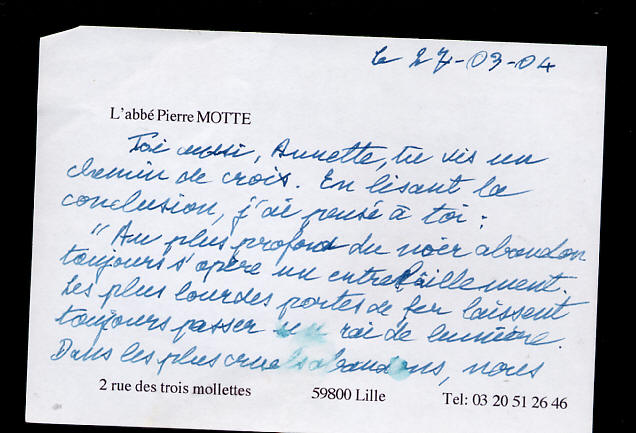 le 27-03-04
L'abbé Pierre MOTTE
Toi aussi, Annette, tu vis un
chemin de croix. En lisant la
conclusion, j'ai pensé à toi :
"Au plus profond du noir abandon
toujours s'opère un entrebâillement.
Les plus lourdes portes de fer laissent
toujours passer un rai de lumière.
Dans les plus cruels abandons, nous
2 rue des trois mollettes 59800 Lille Tel: 03 20 51 26 46